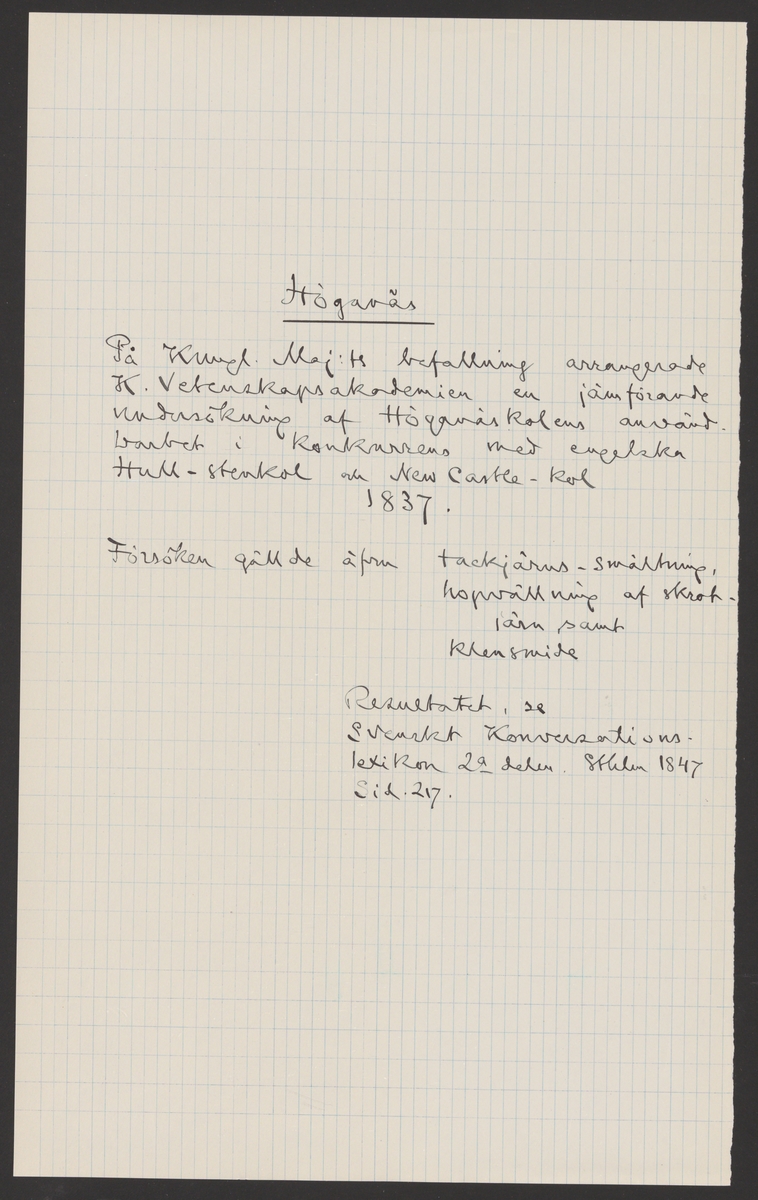 Höganäs
På Kungl. Maj:ts befallning arrangerade
K. Vetenskapsakademien en jämförande
undersökning af Höganäskolens använd-
barhet i konkurrens med engelska
Hull-stenkol och New Castle-kol
1837.
Försöken gällde äfven tackjärns-smältning,
hopvällning af skrot-
järn samt
klensmide
Resultatet, se
Svenskt Konversations-
lexikon 2a delen. Sthlm 1847
Sid. 217.